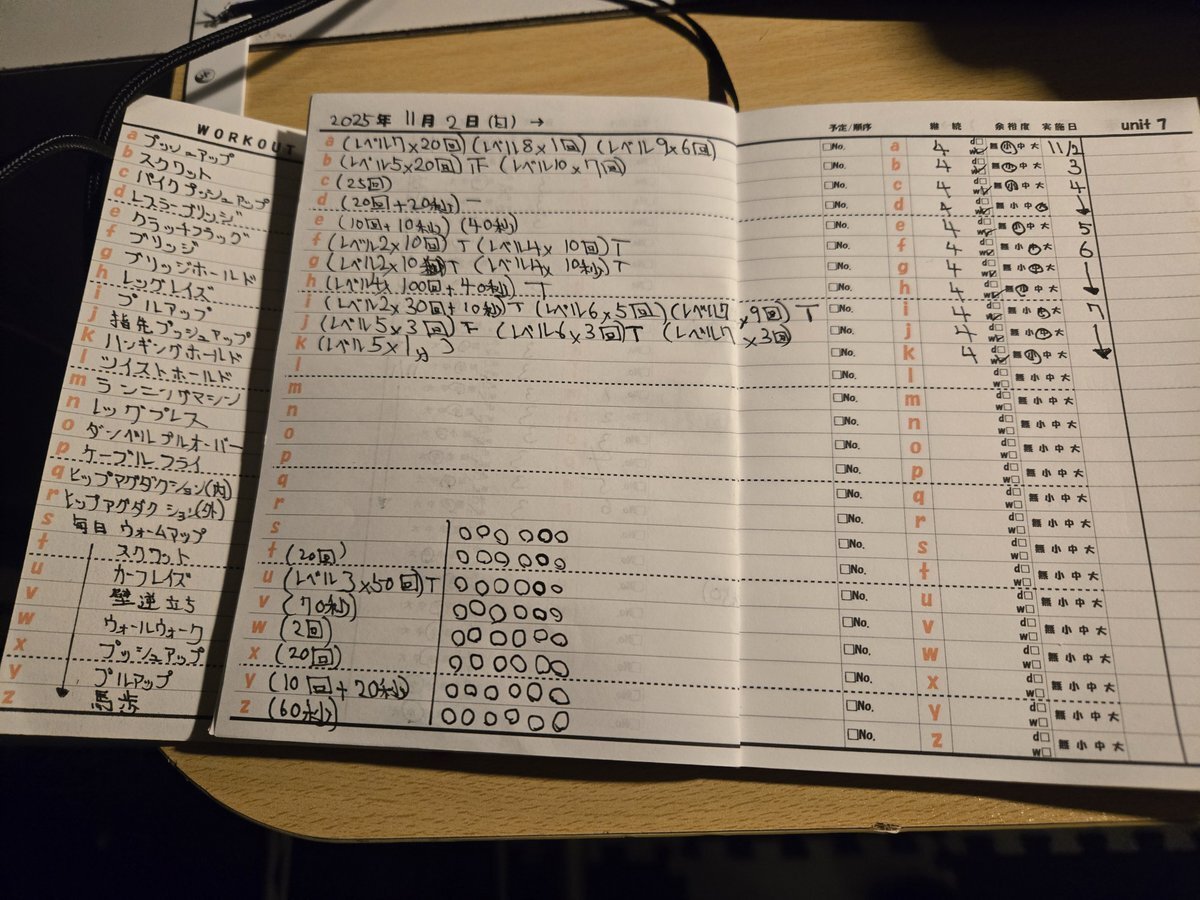 WORKOUT
a プッシュアップ
b スクワット
c パイクプッシュアップ
d レスラーブリッジ
e クラッチフラッグ
f ブリッジ
g ブリッジホールド
h レッグレイズ
i プルアップ
j 指先プッシュアップ
k ハンギングホールド
l ツイストホールド
m ランニングマシーン
n レッグプレス
o ダンベルプルオーバー
p ケーブルフライ
q ヒップアグダクション(内)
r ヒップアグダクション(外)
s 毎日 ウォームアップ
t スクワット
u カーフレイズ
v 壁逆立ち
w ウォールウォーク
x プッシュアップ
y プルアップ
z 馬歩
2025年 11月 2日(日) →
a (レベル7×20回) (レベル8×1回) (レベル9×6回)
b (レベル5×20回) 下 (レベル10×7回)
c (25回)
d (20回+20秒) 一
e (10回+10秒) (40秒)
f (レベル2×10回) T (レベル4×10回) T
g (レベル2×10秒) T (レベル4×10秒) T
h (レベル4×100回+40秒) T
i (レベル2×30回+10秒) T (レベル6×5回) (レベル7×9回) T
j (レベル5×3回) 下 (レベル6×3回) T (レベル7×3回)
k (レベル5×1分)
l
m
n
o
p
q
r
s ○○○○○○
t (20回) ○○○○○○
u (レベル3×50回) T ○○○○○○
v (70秒) ○○○○○○
w (2回) ○○○○○○
x (20回) ○○○○○○
y (10回+20秒) ○○○○○○
z (60秒) ○○○○○○
予定/順序 継続 余裕度 実施日 unit 7
□No. a 4 d□ w☑ 無小中大 11/2
□No. b 4 d□ w☑ 無小中大 3
□No. c 4 d□ w☑ 無小中大 4
□No. d 4 d□ w☑ 無小中大 ↓
□No. e 4 d□ w☑ 無小中大 5
□No. f 4 d□ w☑ 無小中大 6
□No. g 4 d□ w☑ 無小中大 ↓
□No. h 4 d□ w☑ 無小中大
□No. i 4 d□ w☑ 無小中大 7
□No. j 4 d□ w☑ 無小中大 ↓
□No. k 4 d□ w☑ 無小中大
□No. l d□ w□ 無小中大
□No. m d□ w□ 無小中大
□No. n d□ w□ 無小中大
□No. o d□ w□ 無小中大
□No. p d□ w□ 無小中大
□No. q d□ w□ 無小中大
□No. r d□ w□ 無小中大
□No. s d□ w□ 無小中大
□No. t d□ w□ 無小中大
□No. u d□ w□ 無小中大
□No. v d□ w□ 無小中大
□No. w d□ w□ 無小中大
□No. x d□ w□ 無小中大
□No. y d□ w□ 無小中大
□No. z d□ w□ 無小中大